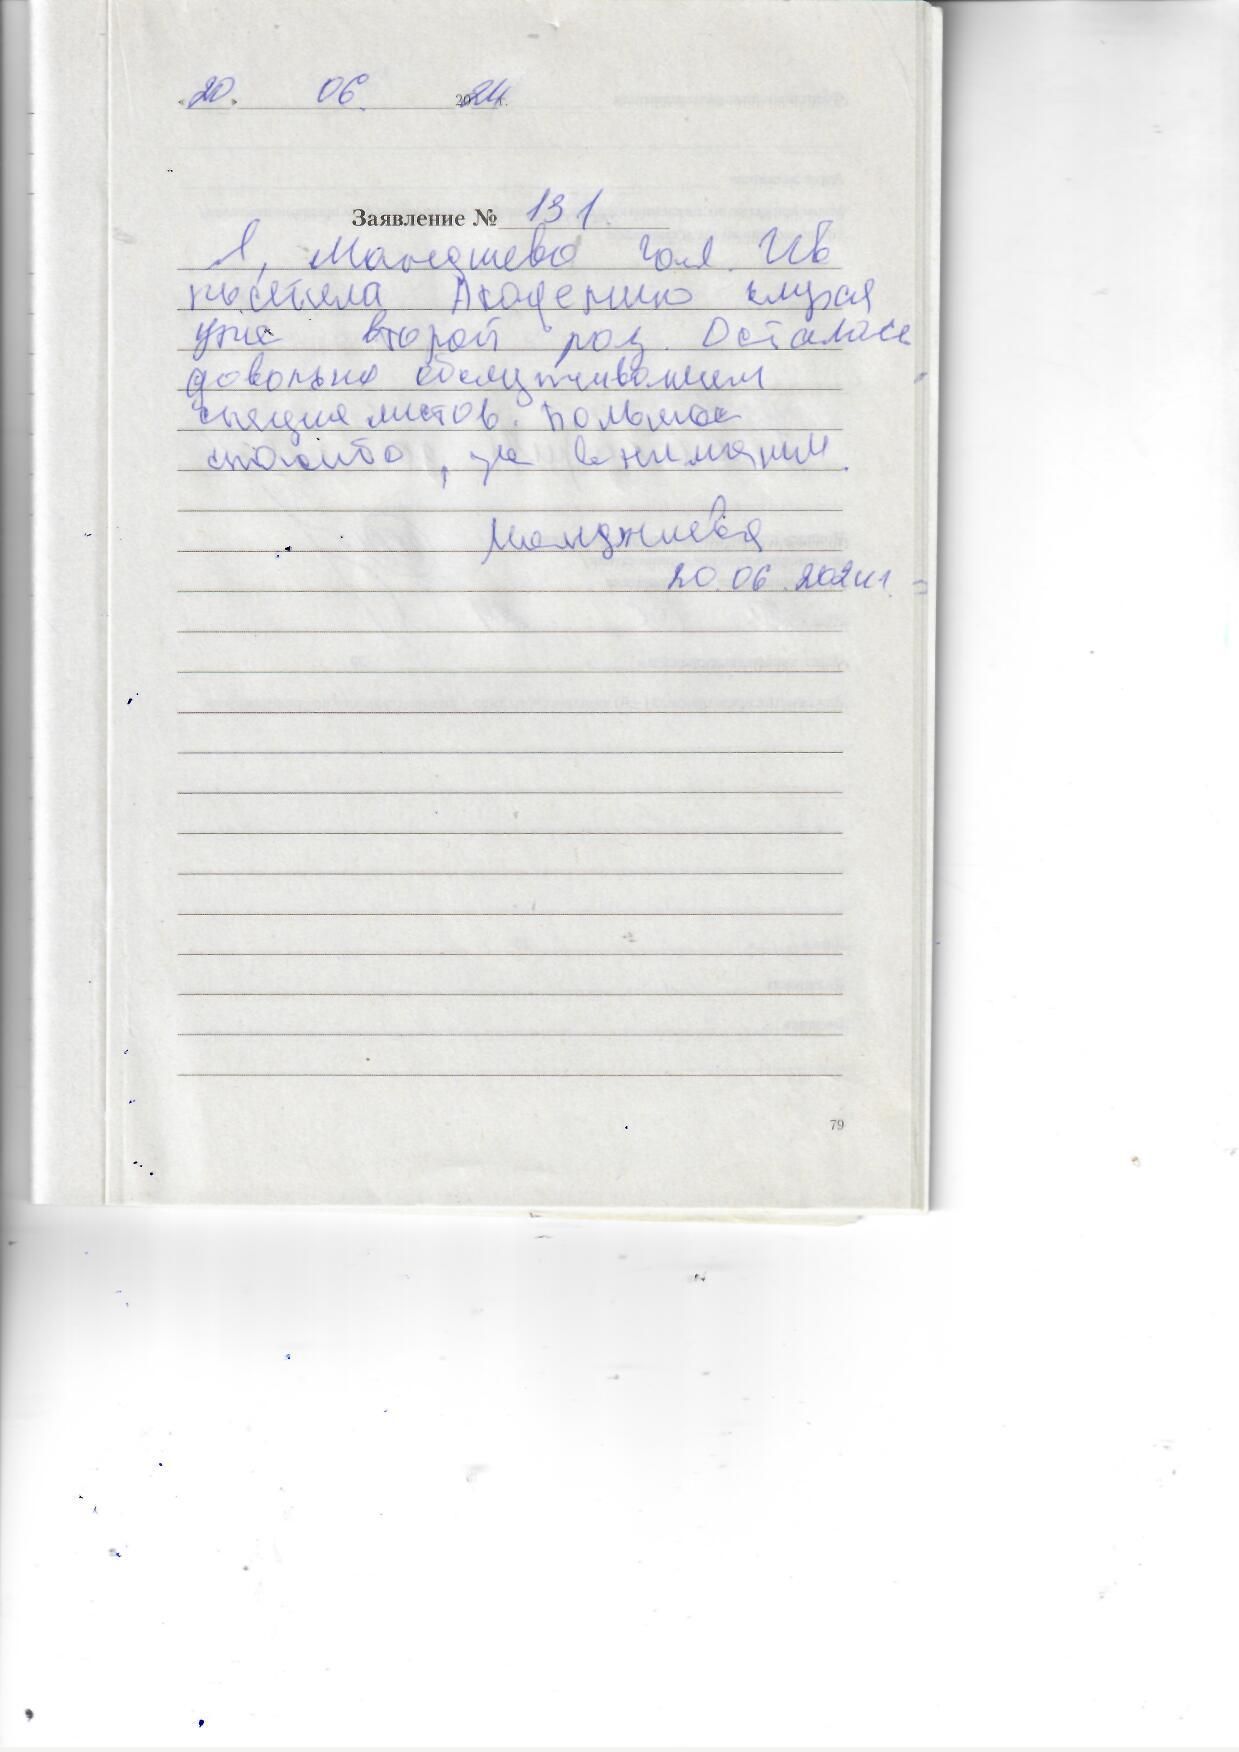 «20» 06. 2024г.
Заявление № 131.
Я, Манджиева Гол. Ив
посетила Академию слуха
уже второй раз. Осталась
довольна обслуживанием
специалистов. Большое
спасибо, за внимание.
Манджиева
20.06.2024г.
79